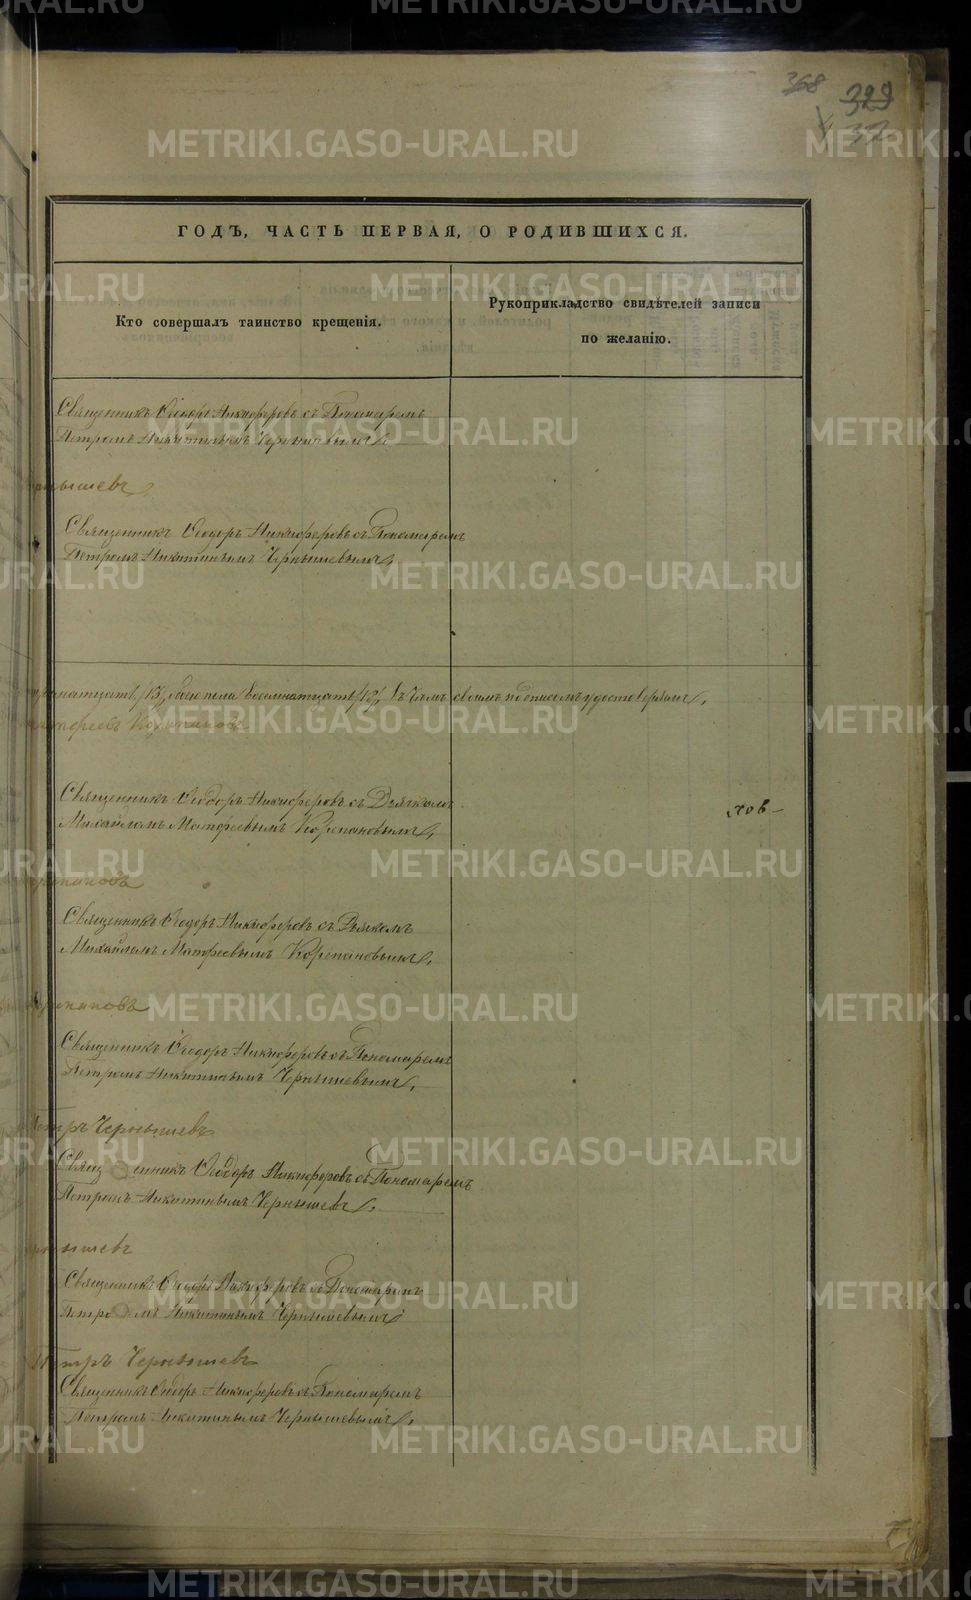 METRIKI.GASO-URAL.RU METRIKI.GASO-URAL.RU
368 329
METRIKI.GASO-URAL.RU METRIKI
ГОДЪ, ЧАСТЬ ПЕРВАЯ, О РОДИВШИХСЯ.
Кто совершалъ таинство крещенія.
Рукоприкладство свидѣтелей записи
по желанію.
Священникъ Ѳеодоръ Никифоровъ съ Пономаремъ
Петромъ Никитинымъ Чернышевымъ
нышевъ
Священникъ Ѳеодоръ Никифоровъ съ Пономаремъ
Петромъ Никитинымъ Чернышевымъ
/13/ обоего пола восемнатцать /18/ въ чемъ своимъ подписомъ удостоверяемъ
Корепановъ
Священникъ Ѳеодоръ Никифоровъ съ Дьячкомъ
Михайломъ Матфеевымъ Корепановымъ
репановъ
Священникъ Ѳеодоръ Никифоровъ съ Дьячкомъ
Михайломъ Матфеевымъ Корепановымъ
репановъ
Священникъ Ѳеодоръ Никифоровъ съ Пономаремъ
Петромъ Никитинымъ Чернышевымъ
Петръ Чернышевъ
Священникъ Ѳеодоръ Никифоровъ съ Пономаремъ
Петромъ Никитинымъ Чернышевъ
нышевъ
Священникъ Ѳеодоръ Никифоровъ съ Пономаремъ
Петромъ Никитинымъ Чернышевымъ
Петръ Чернышевъ
Священникъ Ѳеодоръ Никифоровъ съ Пономаремъ
Петромъ Никитинымъ Чернышевымъ
METRIKI.GASO-URAL.RU METRIKI